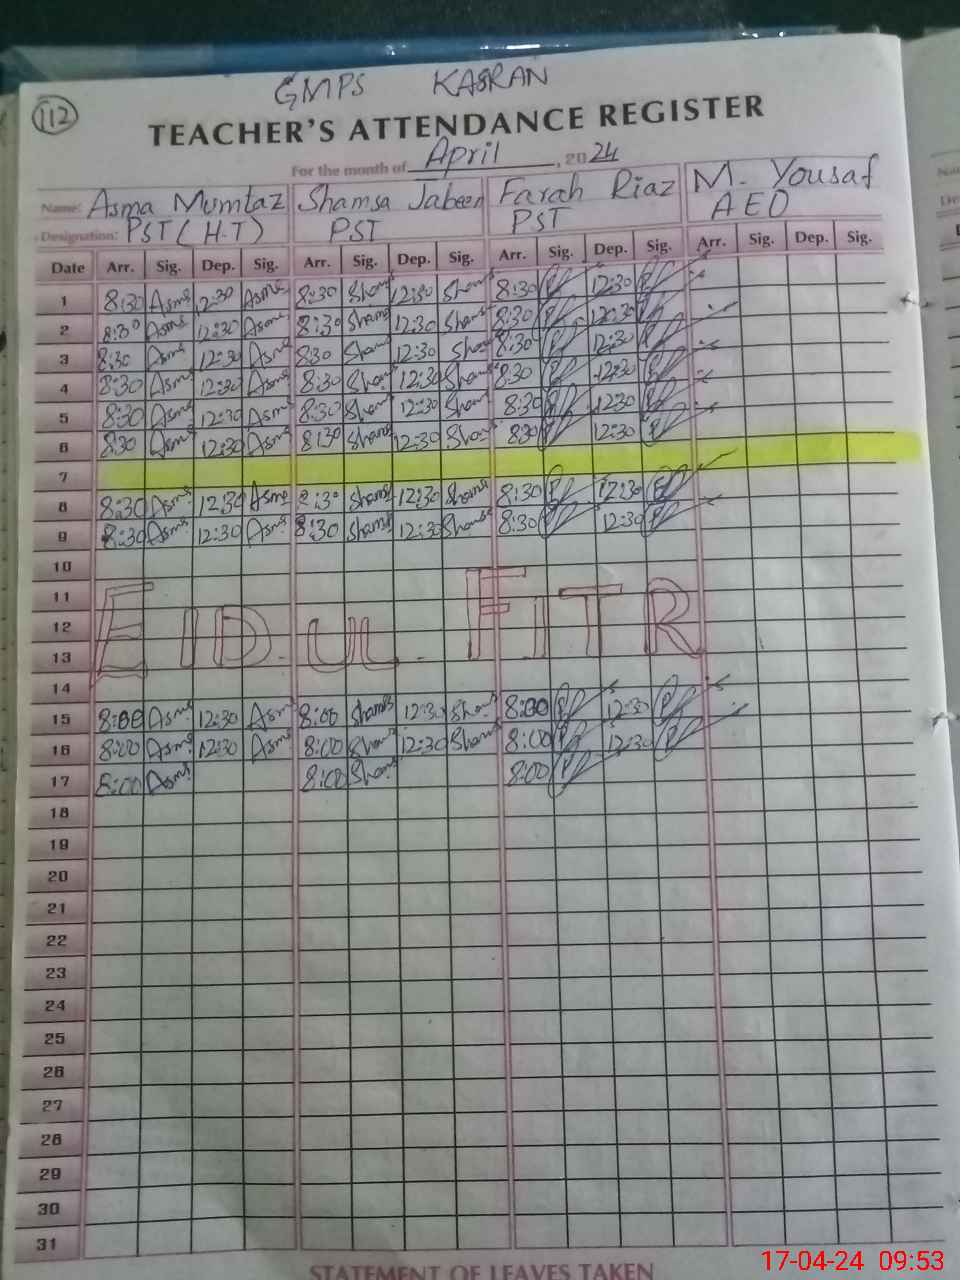 112
GMPS KASRAN
TEACHER'S ATTENDANCE REGISTER
For the month of April, 2024
Name: Asma Mumtaz Shamsa Jabeen Farah Riaz M. Yousaf
Designation: PST (H.T) PST PST AEO
Date Arr. Sig. Dep. Sig. Arr. Sig. Dep. Sig. Arr. Sig. Dep. Sig. Arr. Sig. Dep. Sig.
1 8:30 Asma 12:30 Asma 8:30 Sham 12:30 Sham 8:30 12:30
2 8:30 Asma 12:30 Asma 8:30 Shams 12:30 Shams 8:30 12:30
3 8:30 Asma 12:30 Asma 8:30 Shams 12:30 Sham 8:30 12:30
4 8:30 Asma 12:30 Asma 8:30 Sham 12:30 Sham 8:30 12:30
5 8:30 Asma 12:30 Asma 8:30 Sham 12:30 Sham 8:30 12:30
6 8:30 Asma 12:30 Asma 8:30 Shams 12:30 Sham 8:30 12:30
7
8 8:30 Asma 12:30 Asma 8:30 Shams 12:30 Shams 8:30 12:30
9 8:30 Asma 12:30 Asma 8:30 Shams 12:30 Shams 8:30 12:30
10
11
12 EID.UL.FITR
13
14
15 8:00 Asma 12:30 Asma 8:00 Shams 12:30 Sham 8:00 12:30
16 8:00 Asma 12:30 Asma 8:00 Sham 12:30 Sham 8:00 12:30
17 8:00 Asma 8:00 Sham 8:00
18
19
20
21
22
23
24
25
26
27
28
29
30
31
STATEMENT OF LEAVES TAKEN
17-04-24 09:53